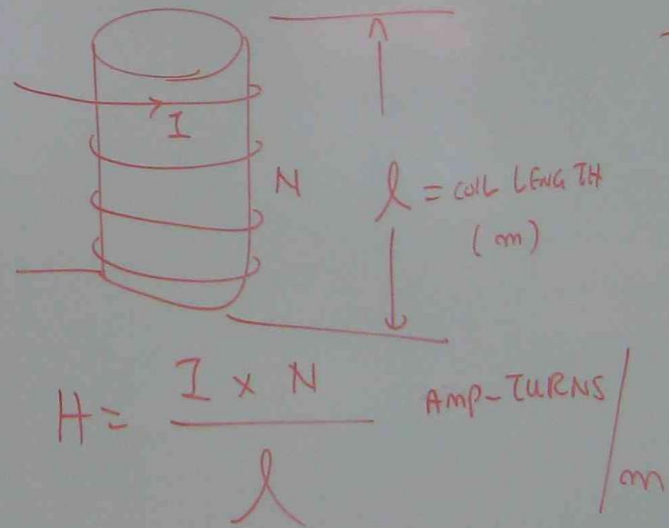 I
N
l = COIL LENGTH
(m)
H = I x N / l AMP-TURNS / m